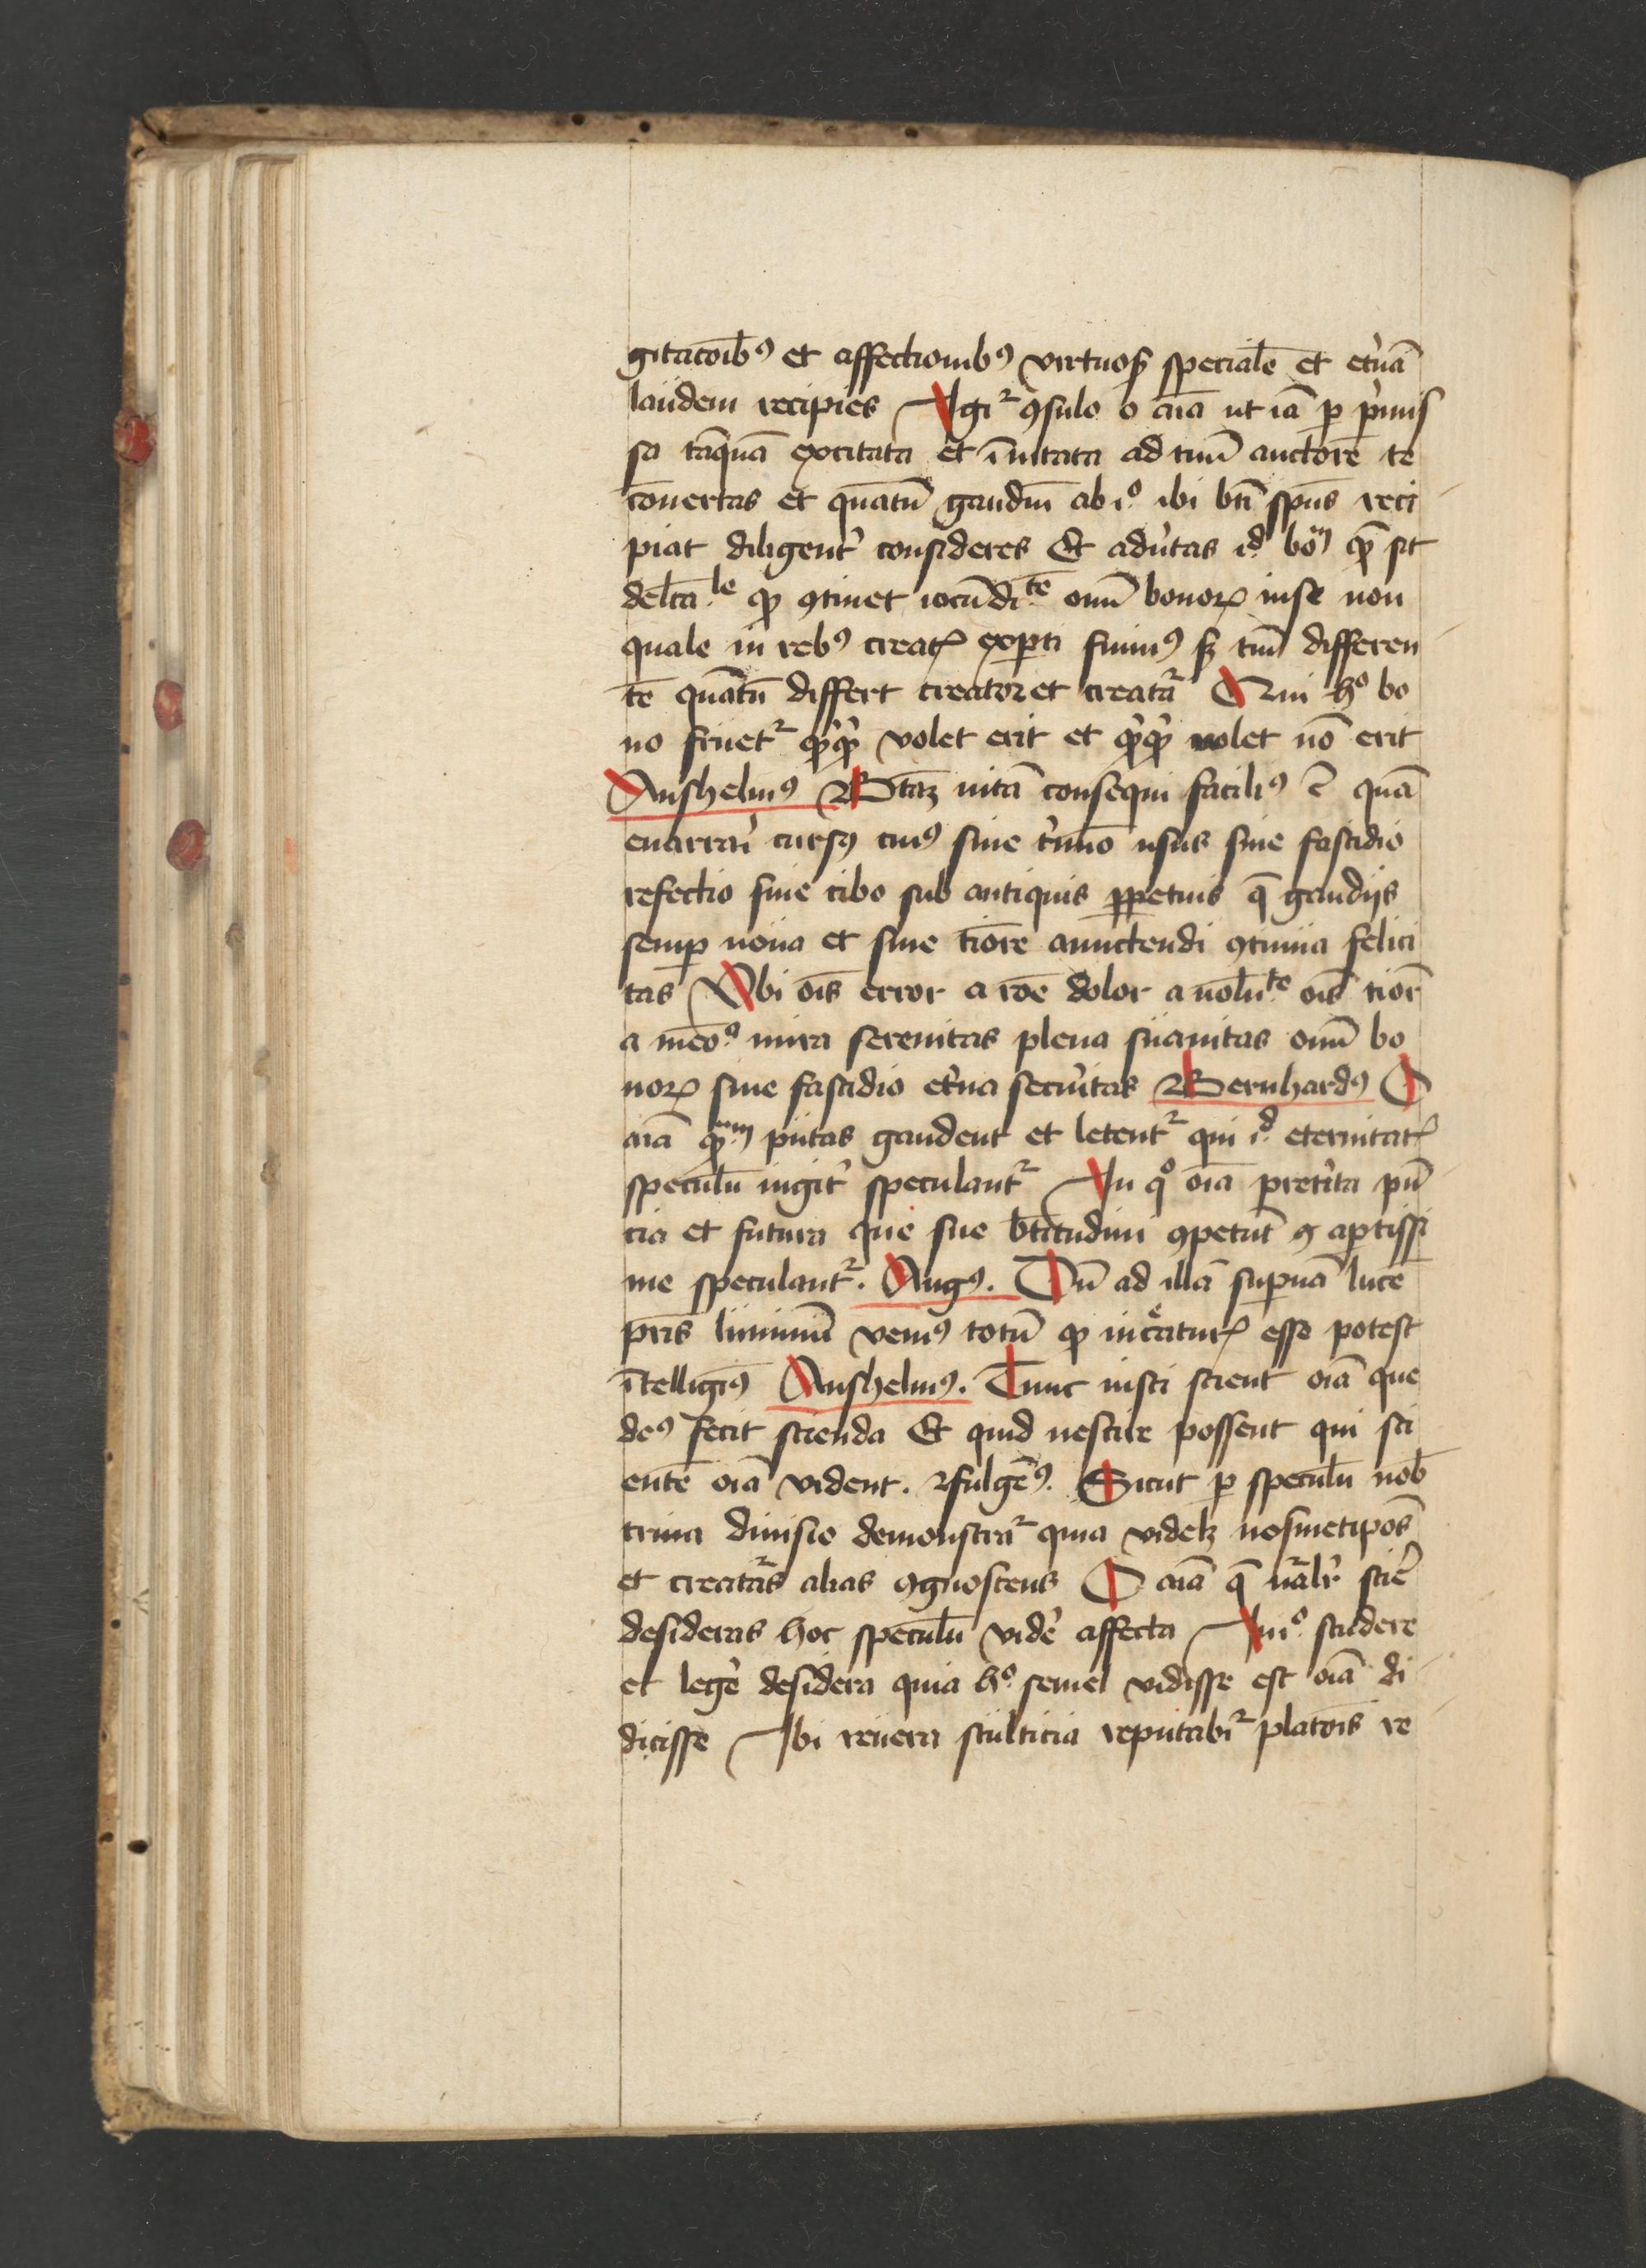 gitacōibꝰ et affectionibꝰ virtuosꝭ specialē et et'nā
laudem recipies Igiᵗ ꝯsulo o aīa ut iā ꝑ p'mis
sa tāquā excitata et īuitata ad tuū auctorē te
cōuertas et quātū gaudiū ab i.º ibi btī spūs reci
piat diligent' consideres Et adu'tas i.d boᵐ ꝙ̄ sit
delcta.le ꝙ ꝯtinet iocūdi.tē oīm bonoꝝ in se non
quale in rebꝰ creatꝭ exꝑti sumꝰ sꝫ tm̄ differen
tē quātū differt creator et creat'a Qui h.º bo
no fruetᵗ q'q' volet erit et q'q' nolet nō erit
Anshelmꝰ Btāꝫ uitā consequi faciliꝰ ē quā
enarrar' cursꝰ eiꝰ sine t'mīo usus sine fastidio
refectio sine cibo sub antiquis ꝑpetuis q̄ gaudijs
semꝑ noua et sine tiōre amittendi ꝯtinua felici
tas Ubi oīs error a rōe dolor a uolū.te oīs tior̄
a meō.ª mira serenitas plena suauitas oīm bo
noꝝ sine fastidio et'na secu'itas Bernhardꝰ O
aīa ꝙ.m putas gaudent et letentᵗ qui i.d eternitatꝭ
speculū iugit' speculantᵗ In qº oīa preterita pūt
cia et futura que sue btitudini ꝯpetūt ꝯ aptissi
me speculantᵗ. Augꝰ. Cū ad illā suꝑnā lucē
prīs luminū venīꝰ totū ꝙ in c'atur̄ esse potest
ītelligīꝰ Anshelmꝰ. Tunc iusti scient oīa que
deꝰ fecit scienda Et quid nescire possent qui sci
entē oīa vident. ffulgēꝰ. Sicut ꝑ speculū nob̄
trina diuisio demonstraᵗ quia videlꝫ nosmetiposˉ
et creatu'as alias ꝯgnoscens O aīa q̄ nālr' scir'
desideras hoc speculū vide' affecta In.º studere
et lege' desidera quia h.º semel vidisse est oīa di
dicisse Ibi reuera stulticia reputabiᵗ platoīs re